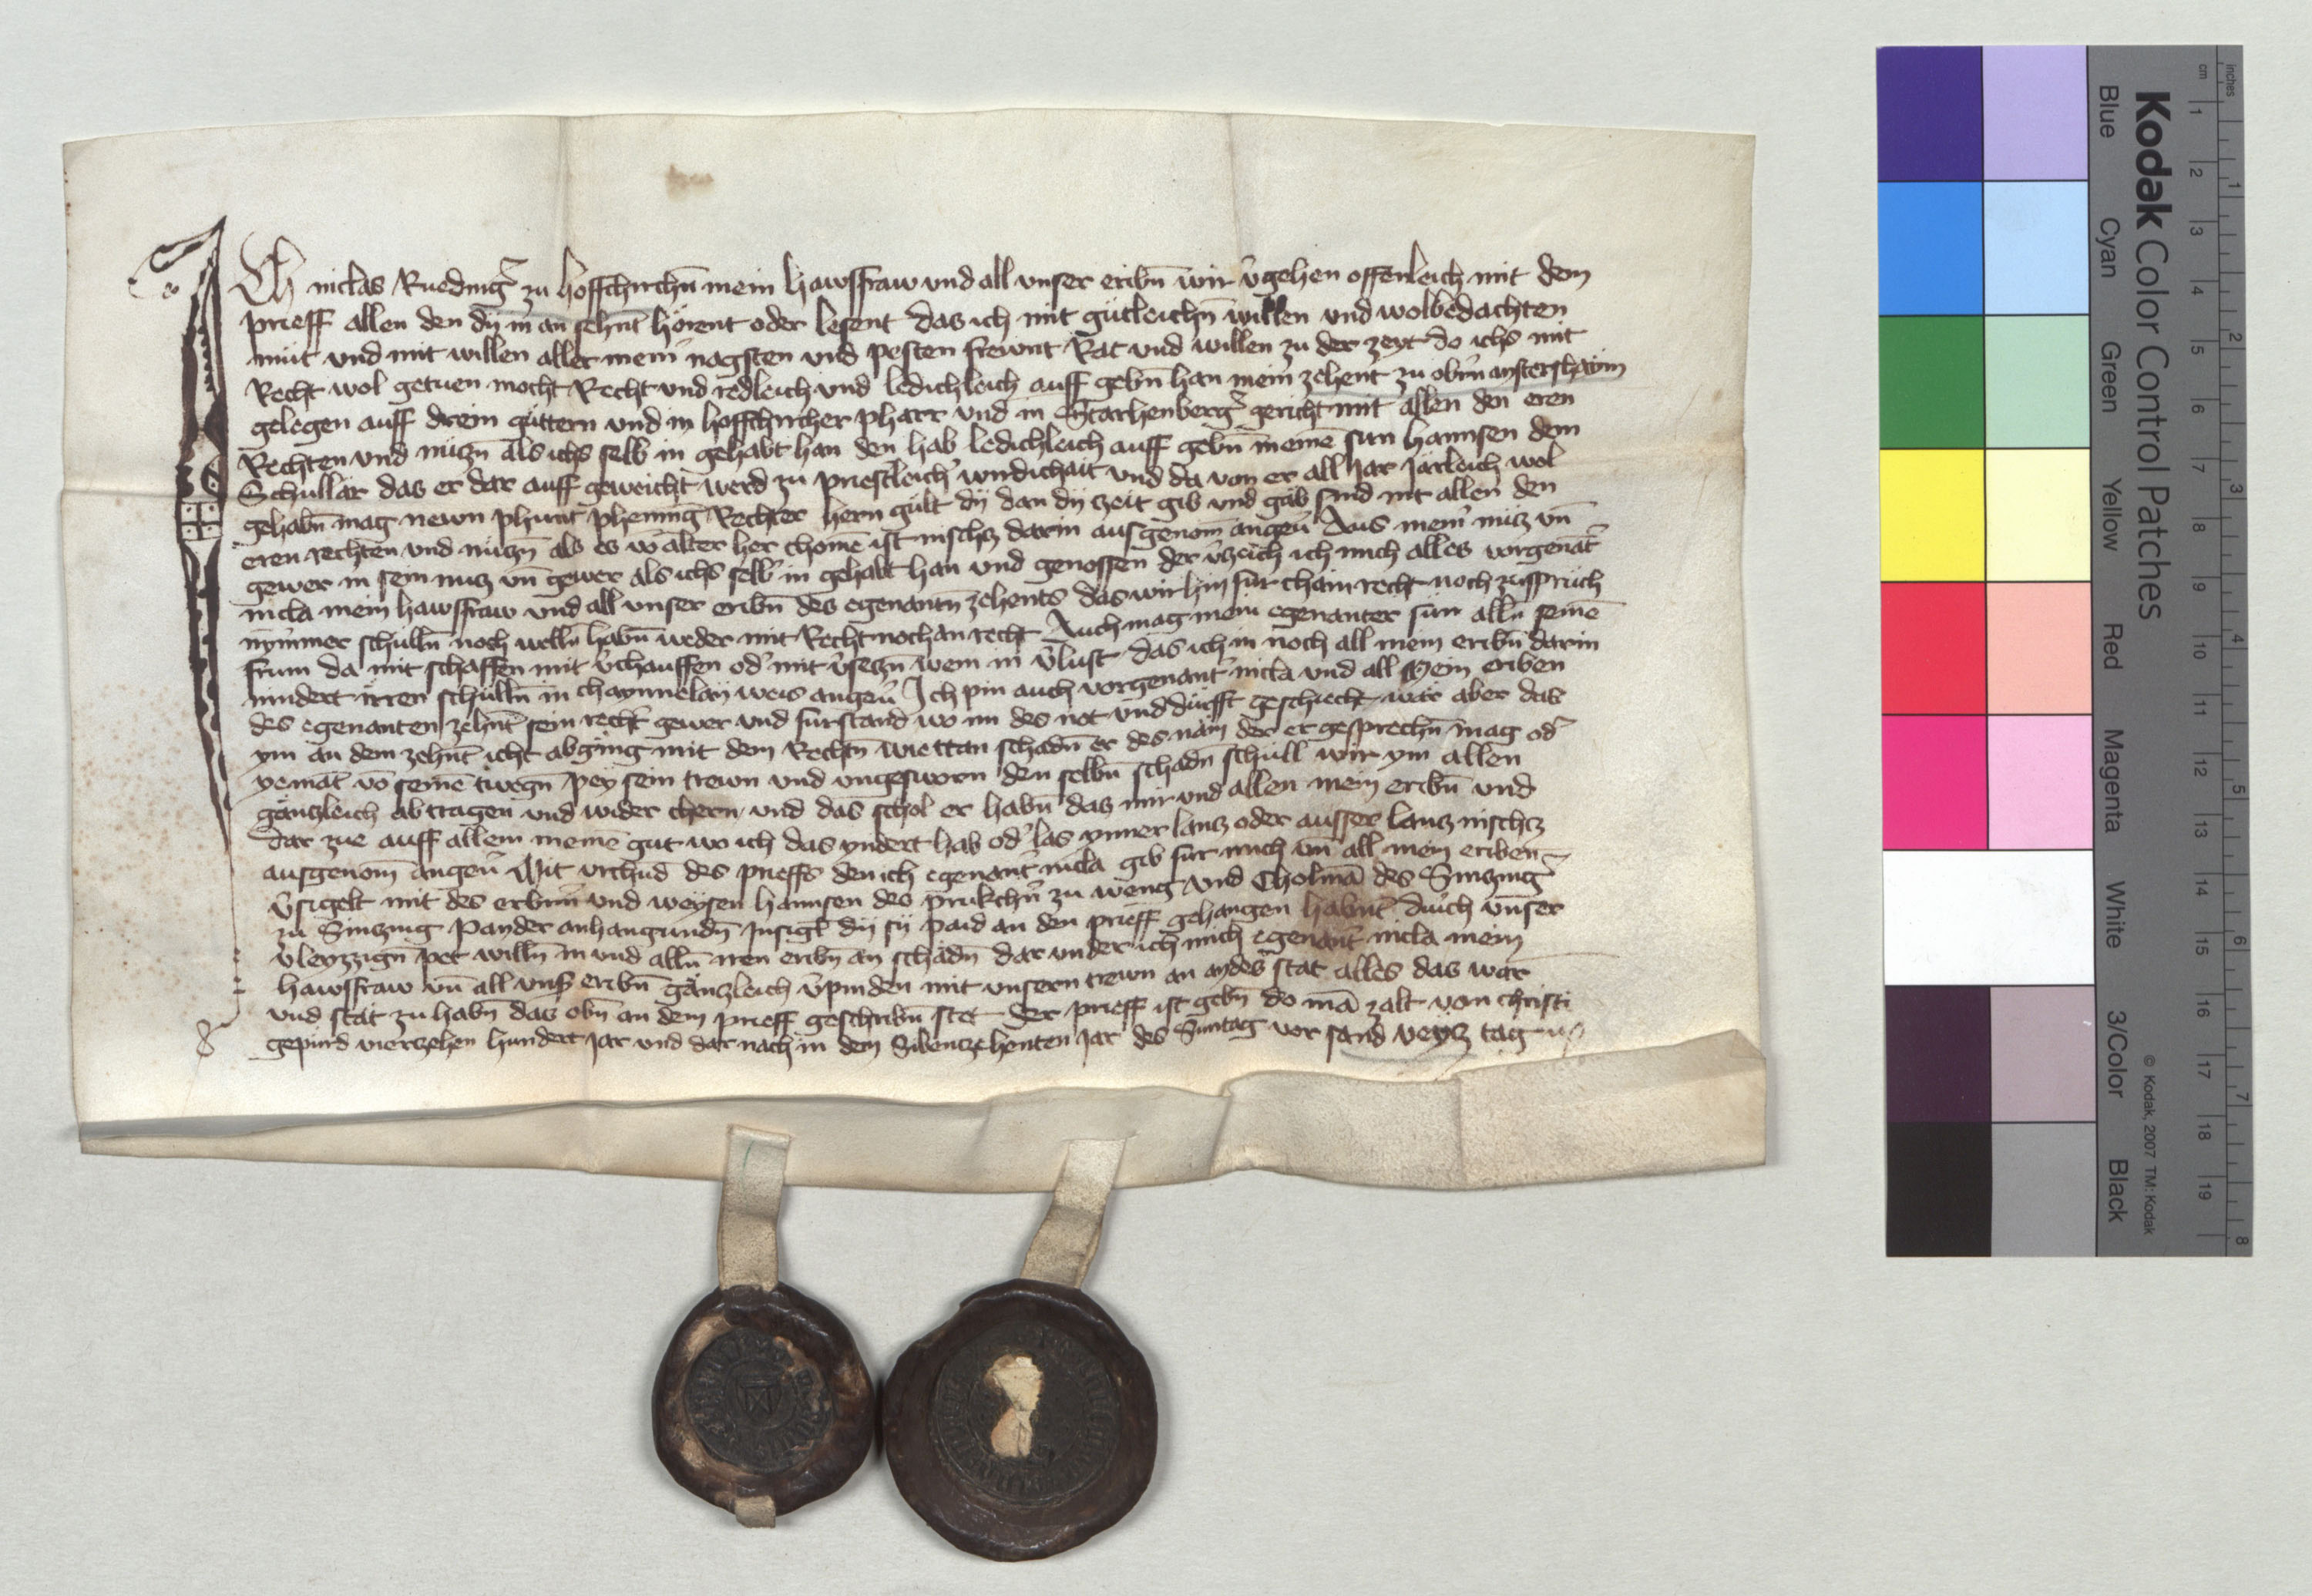 Ich niclas Ruedingˀ zu hoffchirchn̄ mein hawsfraw und all unser eribn̄ wir v̂gehen offenleich mit dem
prieff allen den dy in an sehn̄t hörent oder lesent das ich mit gütleichn̄ willen und wolbedachten
müt und mit willen aller meinˀ nagsten und pesten frewnt Rat und willen zu der zeyt do ichs mit
Recht wol getuen mocht Recht und redleich und ledichleich auff gebn̄ han mein zehent zu obrn̄ aystershaym
gelegen auff drein güttern und in hoffchircher pharr und in Starhenbergˀ gericht mit allen den eren
Rechten und nüczn̄ als ichs selb in gehabt han den hab ledichleich auff gebn̄ meinē sun hannsen dem
Schullär das er dar auff geweicht werd zu priestleichˀ wirdichait und da von er all Jar Järleich wol
gehabn̄ mag newn phunt phening Rechter hern gült dy dan dy zeit gib und gäb sind mt allen den
eren rechten und nüczn̄ als es vō alter her chomē ist nischcz darin ausgenom̄ angeûˀ Aus meinˀ nücz vn̄
gewer in sein nucz vn̄ gewer als ichs selb in gehabt han und genossen der v̂zeich ich mich alles vorgenātˀ
nicla mein hawsfraw und all unser eribn̄ des egenantn̄ zehents das wir hin für chain recht noch zuspruch
nym̄mer schulln̄ noch welln̄ habn̄ weder mit Recht noch an recht Auch mag mein egenanter sun alln̄ seinē
frum da mit schaffen mit v̂chauffen odˀ mit v̂seczn̄ wem in v̂lust das ich in noch all mein eribn̄ darin
nindert irren schülln̄ in chaynnelay weis angeûˀ Ich pin auch vorgenantˀ nicla und all Mein eriben
des egenanten zehn̄t sein recht gewer und fürstand wo im des not und dürfft geschiecht wär aber das
ym an dem zehn̄t icht abging mit dem Rechtn̄ wiettan schadn̄ er des näm der er gesprechn̄ mag odˀ
yemāt vō seinē twegn̄ pey sein trewn und ungesworn den selbn̄ schadn̄ schüll wir ym allen
gänczleich ab tragen und wider chern und das schol er habn̄ das mir und allen mein eribn̄ und
dar zue auff allem meinē gut wo ich das yndert hab odˀ las ynner lancz oder ausser lancz nischcz
ausgenom̄ angeûˀ Mit vrchūd des prieffs den ich egenantˀ nicla gib für mich vn̄ all mein eriben
v̂sigelt mit des erbrn̄ und weysen hannsen des prukchnˀ zu weng und Cholmā des Sinczingˀ
zu Sinczing Pander anhangundn̄ Insigl dy sy paid an den prieff gehangen habntˀ durch unser
v̂leyzzign̄ pet willn̄ in und alln̄ iren eribn̄ an schadn̄ dar under ich mich egenantˀ nicla mein
hawsfraw vn̄ all unsˀ eribn̄ gänczleich v̂pinden mit unsern trewn an aydes stat alles das war
und stät zu habn̄ das obn̄ an dem prieff geschribn̄ stet Der prieff ist gebn̄ do mā zalt von christi
gepürd vierzehen hundert Jar und dar nach in dem Sibenczehenten Jar des Suntag vor sand veycz tag
Kodak Color Control Patches
Blue Cyan Green Yellow Red Magenta White 3/Color Black
© Kodak, 2007 TM: Kodak
cm 1 2 3 4 5 6 7 8 9 10 11 12 13 14 15 16 17 18 19
inches 1 2 3 4 5 6 7 8